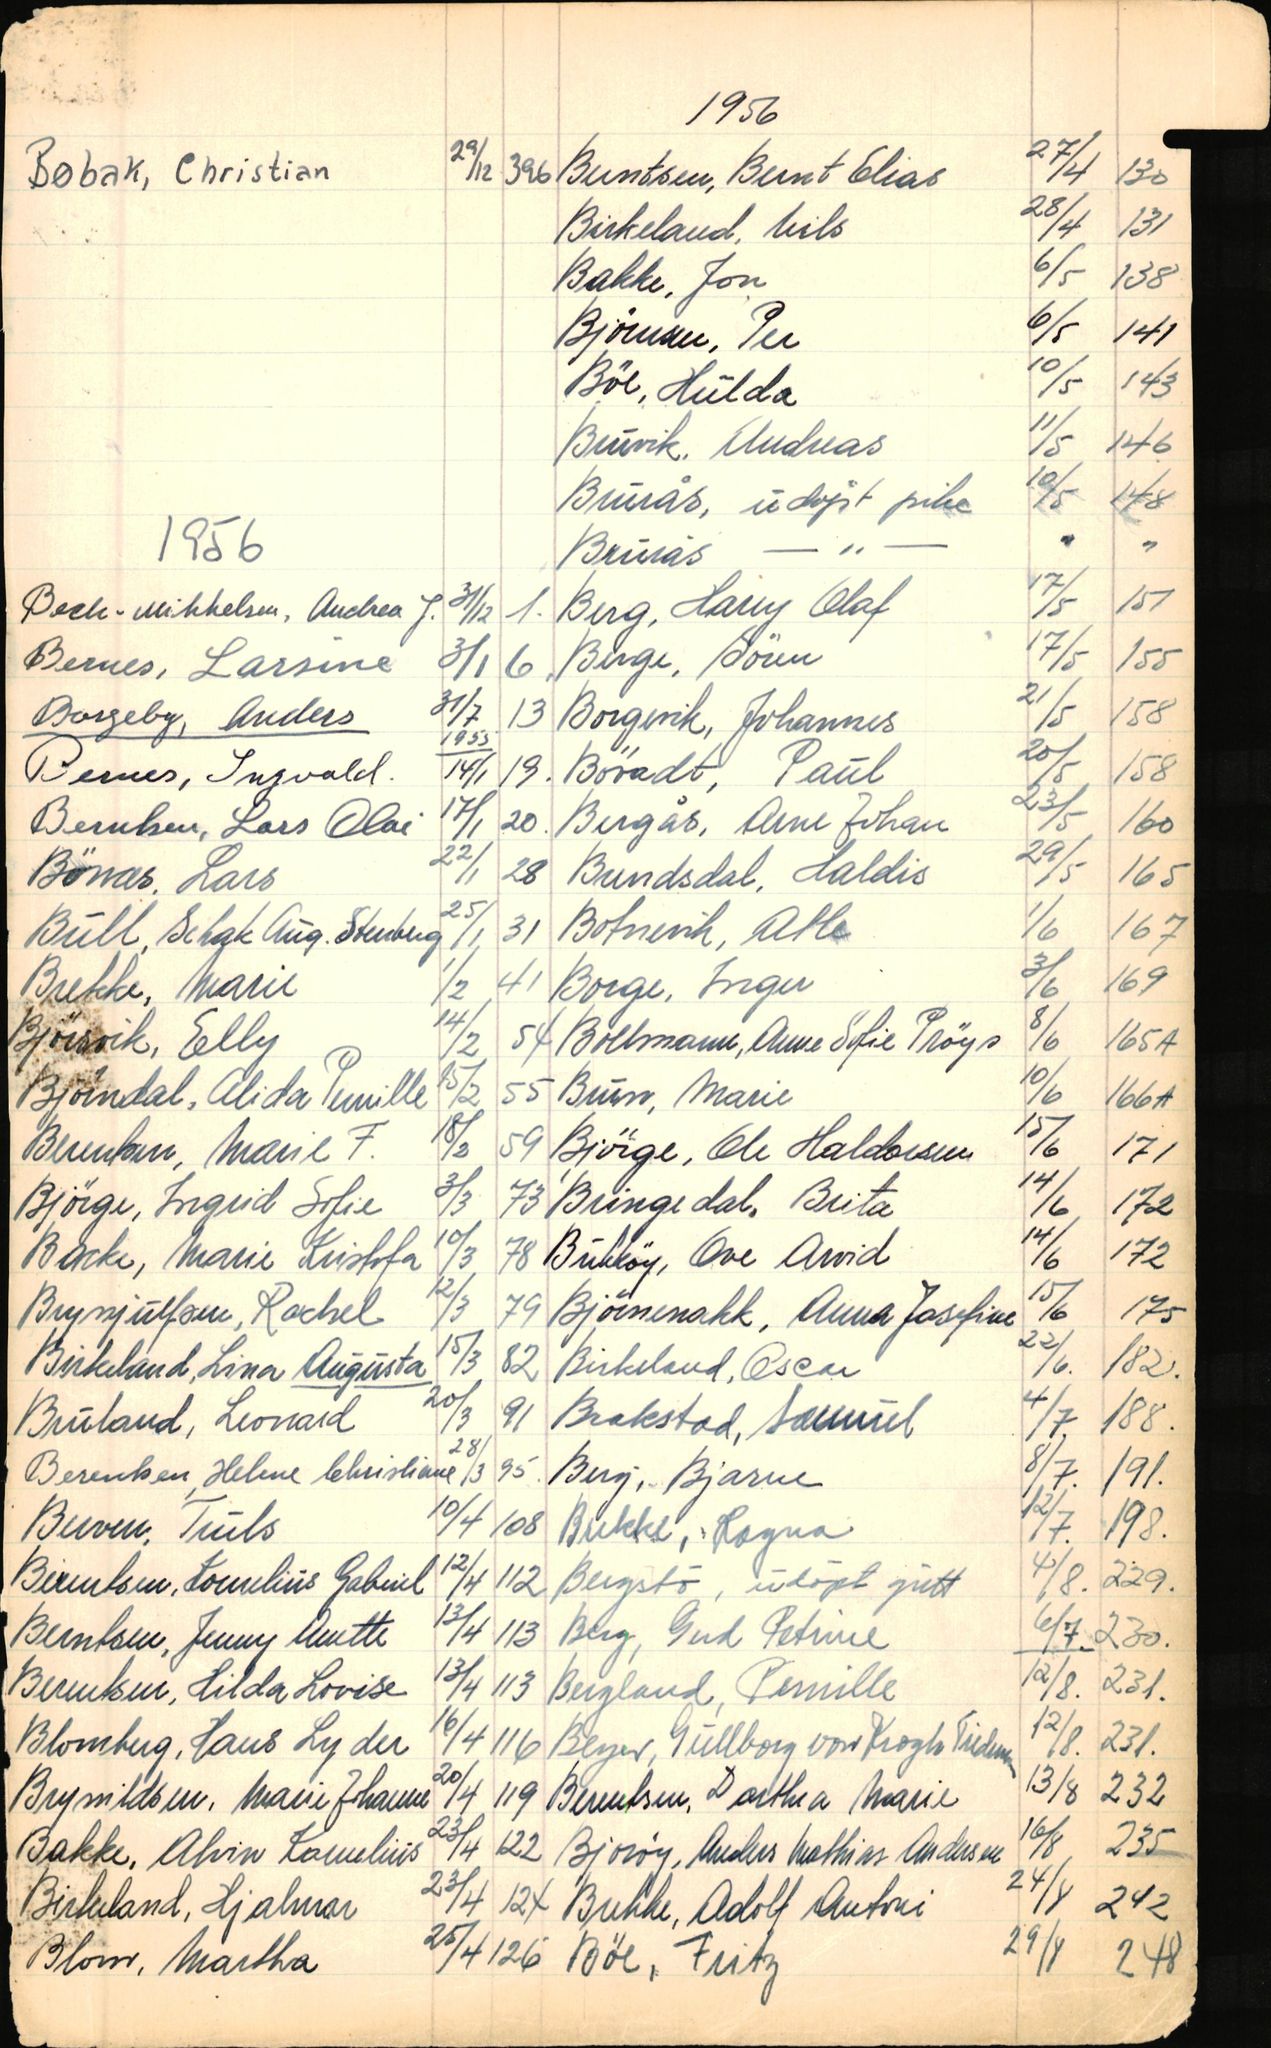 Bøbak, Christian 29/12 396
1956
Beck-Mikkelsen, Andrea J. 31/12 1.
Bernes, Larsine 3/1 6
Borgeby, Anders 31/7 1955 13
Bernes, Ingvald. 14/1 19.
Berntsen, Lars Olai 17/1 20.
Bönæs, Lars 22/1 28
Büll, Schak Aug. Stenberg 25/1 31
Brekke, Marie 1/2 41
Björsvik, Elly 14/2 54
Björndal, Alida Pernille 15/2 55
Berentsen, Marie F. 18/2 59
Björge, Ingrid Sofie 3/3 73
Backe, Marie Kristofa 10/3 78
Brynjülfsen, Rachel 12/3 79
Birkeland, Lina Augusta 15/3 82
Brüland, Leonard 20/3 91
Berentsen, Helene Christiane 28/3 95.
Berven, Trüls 10/4 108
Berentsen, Kornelius Gabriel 12/4 112
Berntsen, Jenny Anette 13/4 113
Berentsen, Hilda Lovise 13/4 113
Blomberg, Hans Lyder 16/4 116
Brynildsen, Marie Johanne 20/4 119
Bakke, Alvin Kornelius 23/4 122
Birkeland, Hjalmar 23/4 124
Blom, Martha 25/4 126
1956
Berntsen, Bernt Elias 27/4 130
Birkeland, Nils 28/4 131
Bakke, Jon 6/5 138
Björnsen, Per 6/5 141
Böe, Hülda 10/5 143
Brüvik, Andreas 11/5 146
Brürås, üdøpt pike 10/5 148
Brürås — " — " "
Berg, Harry Olaf 17/5 151
Berge, Sören 17/5 155
Borgevik, Johannes 21/5 158
Bövadt, Paül 20/5 158
Bergås, Arne Johan 23/5 160
Bundsdal, Haldis 29/5 165
Botnevik, Atle 1/6 167
Borge, Inger 3/6 169
Boltmann, Anne Sofie Pröys 8/6 165A
Bürn, Marie 10/6 166A
Björge, Ole Haldorsen 15/6 171
Bringedal, Brita 14/6 172
Büköy, Ove Arvid 14/6 172
Björnenakk, Anna Josefine 15/6 175
Birkeland, Oscar 22/6. 182.
Brakstad, Samüel 4/7. 188.
Berg, Bjarne 8/7. 191.
Brekke, Ragna 12/7. 198.
Bergstö, üdöpt gütt 4/8. 229.
Berg, Gud Petrine 6/7. 230.
Bergland, Pernille 12/8. 231.
Beyer, Güllborg von Krogh Tideman 12/8. 231.
Berentsen, Dorthea Marie 13/8 232
Bjoröy, Anders Mathias Andersen 16/8 235
Brekke, Adolf Antoni 24/8 242
Böe, Fritz 29/8 248